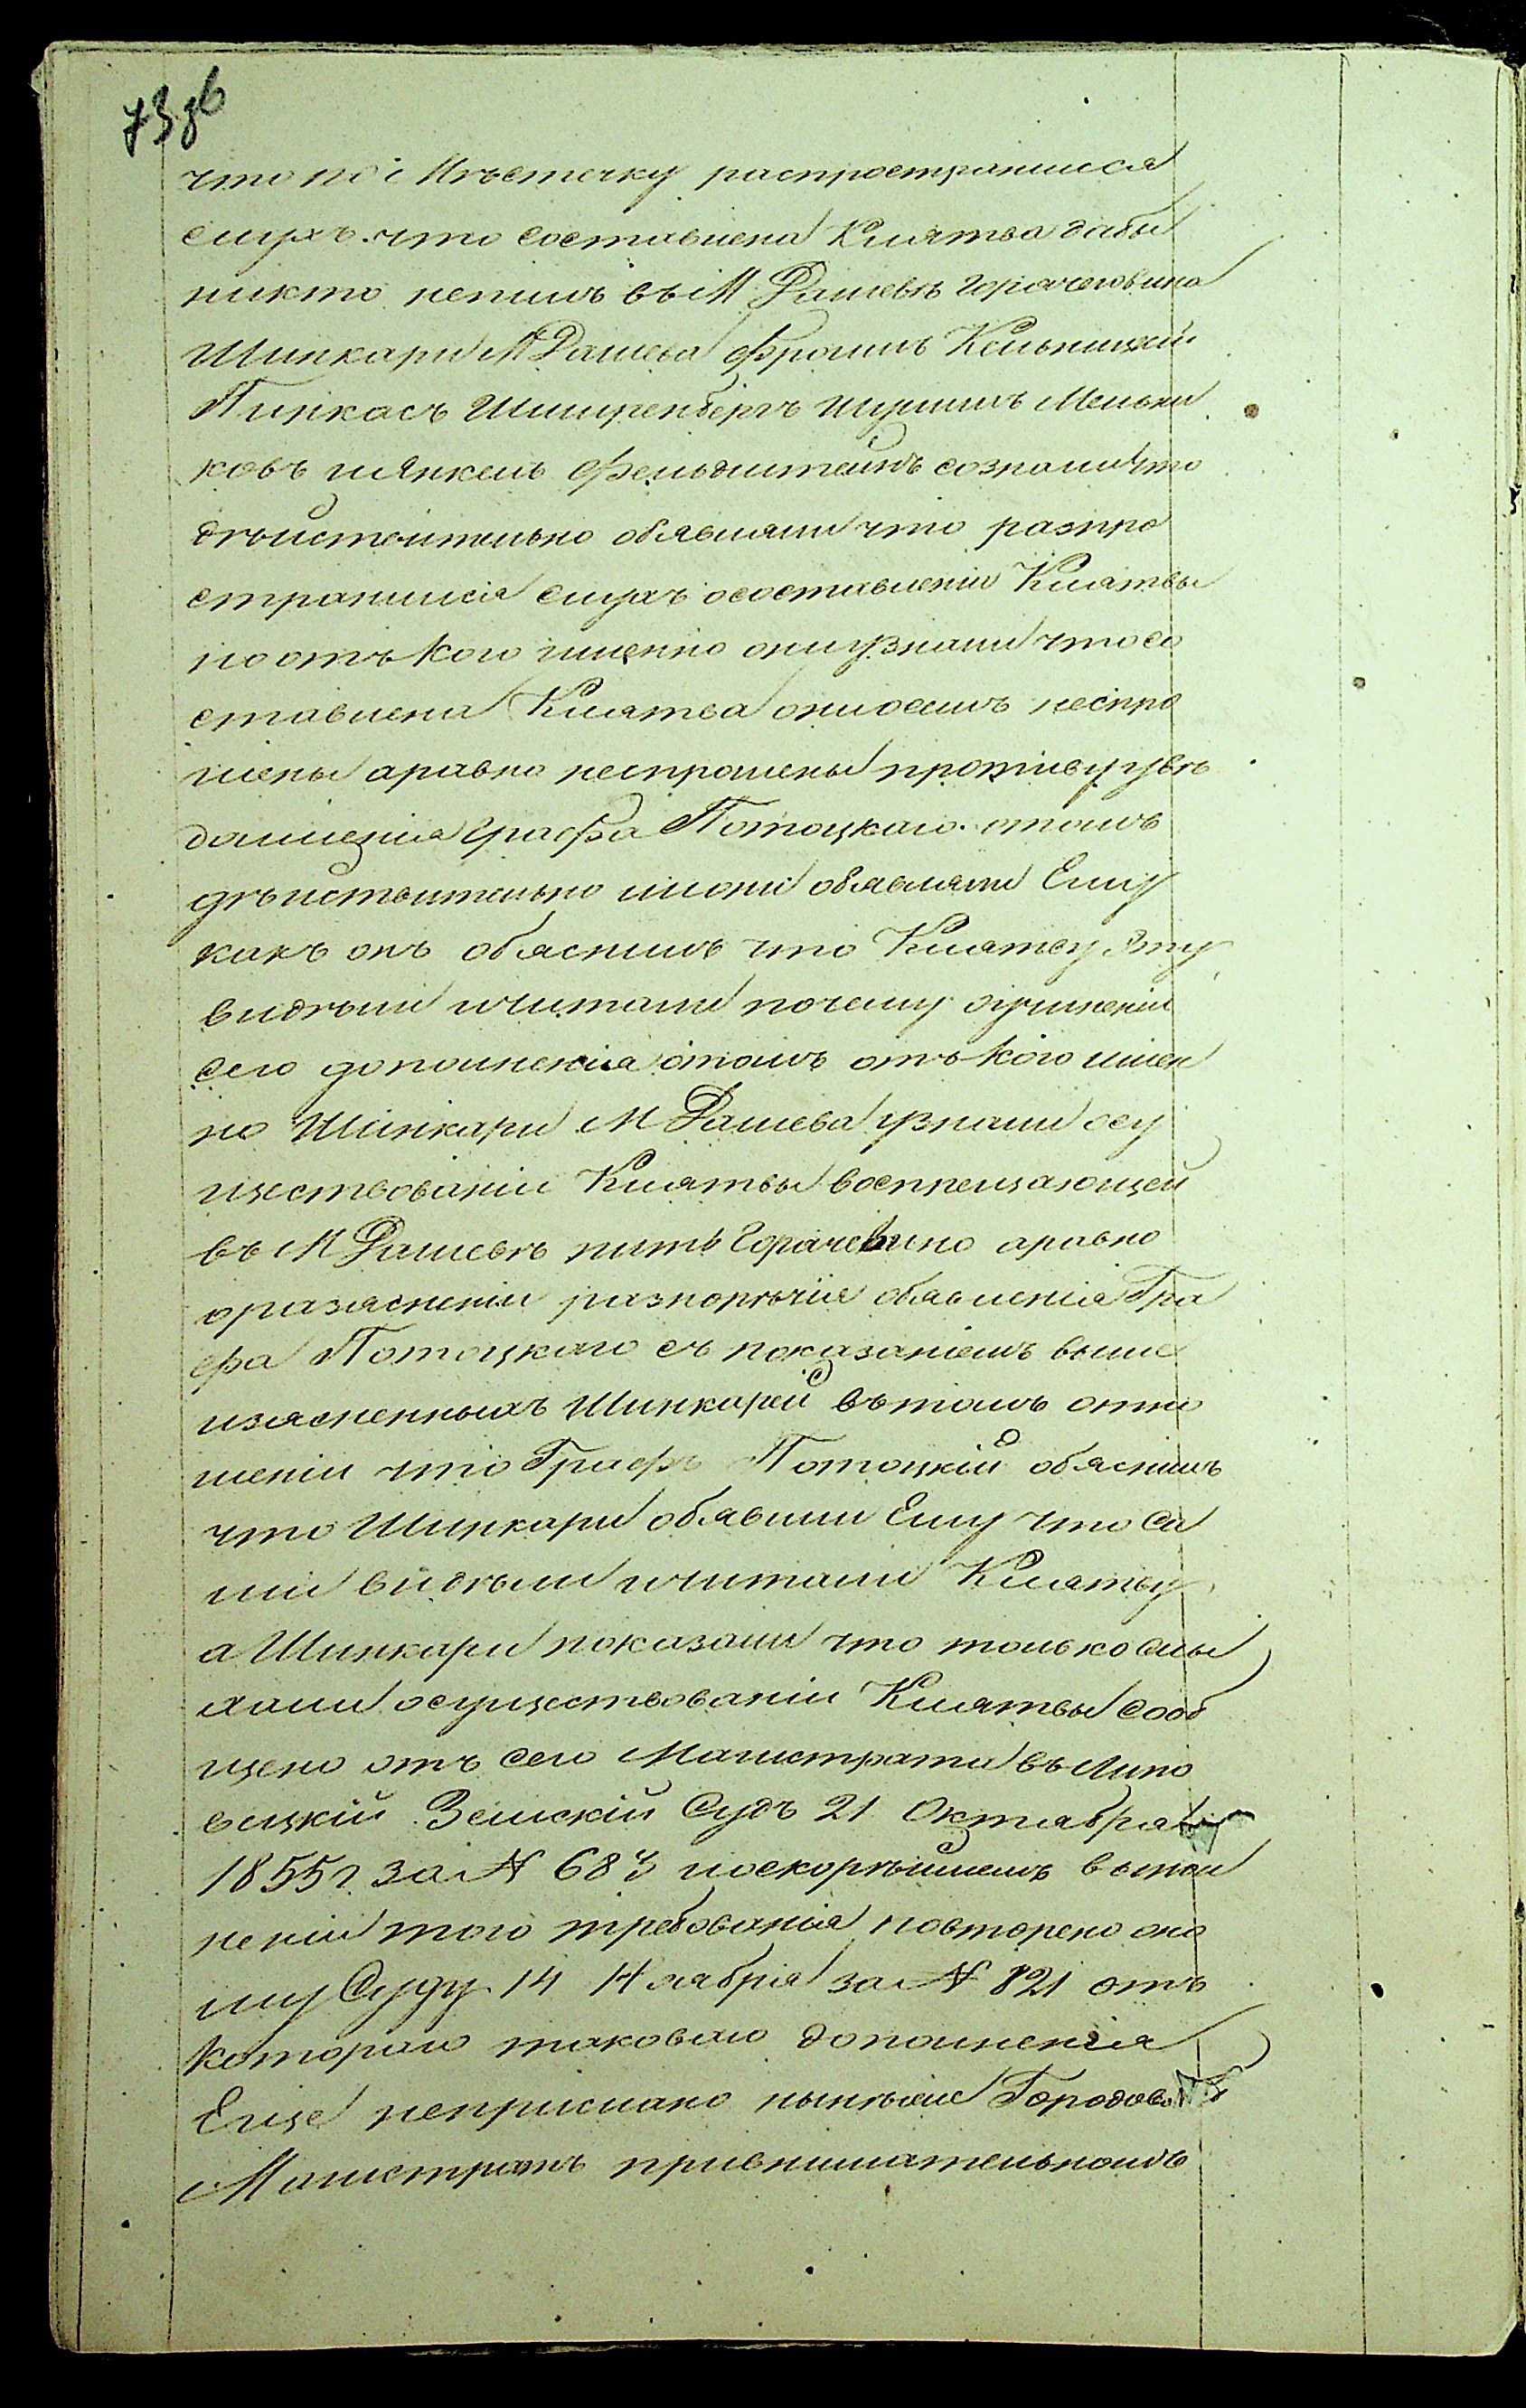 73 зв
что по Мѣстечку распространился
слухъ что составлена Клятва дабы
никто непилъ въ М Дашевѣ Горячего вина
Шинкари М Дашева Фроимъ Кельницкій
Пинкасъ Шпиренбергъ Шулимъ Мельни
ковъ и Янкель Фельдштейнъ сознали что
дѣйствительно обявляли что разпро
странился слухъ осоставленіи Клятвы
но отъ кого именно они узнали что со
ставлена Клятва они осемъ неспро
шены аравно неспрошены противу увѣ
домленія Графа Потоцкаго отомъ
дѣйствительно ли они обявляли Ему
какъ онъ обяснилъ что Клятву эту
видѣли и читали почему оучиненіи
сего дополненія отомъ отъ кого имен
но Шинкари М Дашева узнали осу
ществованіи Клятвы воспрещающей
въ М Дашевѣ пить Горячее вино аравно
оразясненіи разноречія обявленія Гра
фа Потоцкаго съ показаніемъ выше
изясненныхъ Шинкарей въ томъ отно
шеніи что Графъ Потоцкій обяснилъ
что Шинкари обявили Ему что Са
ми видѣли и читали Клятву
а Шинкари показали что только слы
хали осуществованіи Клятвы сооб
щено отъ сего Магистрата въ Липо
вецкій Земскій Судъ 21 Октября
1855 г за № 683 и оскорѣйшемъ выпол
неніи того требованія повторено оно
му Суду 14 Ноября за № 821 отъ
котораго таковаго дополненія
Еще неприслано нынѣ Городовой
Магистратъ привнимательномъ